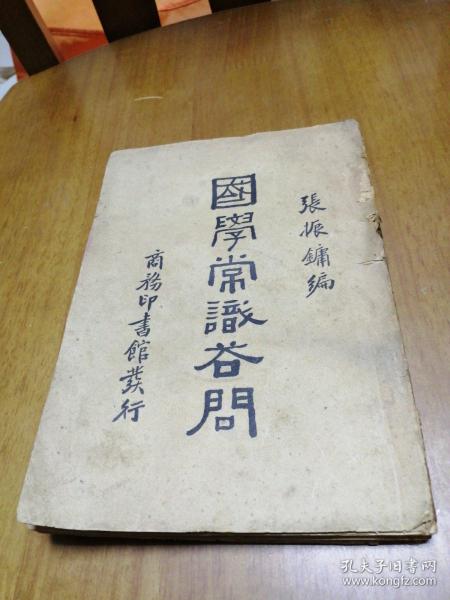 張振鏞編
國學常識荅問
商務印書館發行
孔夫子旧书网
www.kongfz.com